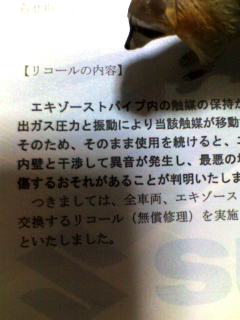 【リコールの内容】
エキゾーストパイプ内の触媒の保持が
出ガス圧力と振動により当該触媒が移動
そのため、そのまま使用を続けると、エ
内壁と干渉して異音が発生し、最悪の
傷するおそれがあることが判明いたしま
つきましては、全車両、エキゾース
交換するリコール（無償修理）を実施
といたしました。